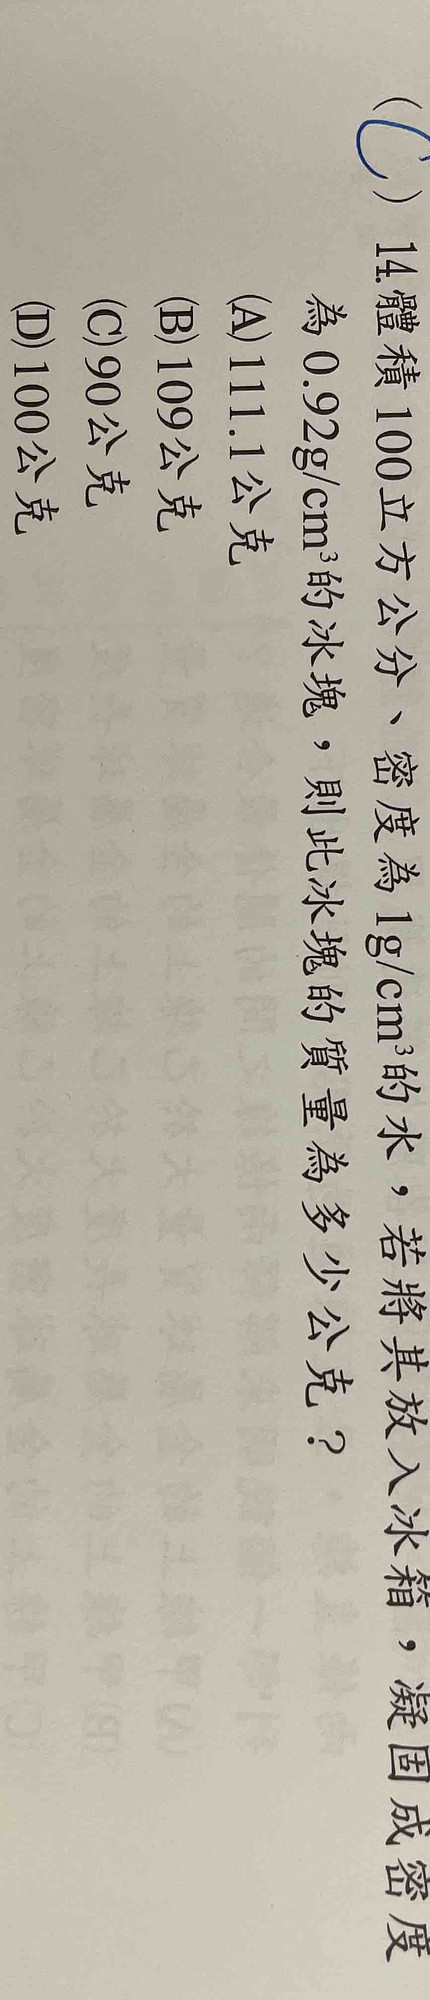 (C) 14.體積100立方公分、密度為1g/cm³的水，若將其放入冰箱，凝固成密度
為0.92g/cm³的冰塊，則此冰塊的質量為多少公克？
(A)111.1公克
(B)109公克
(C)90公克
(D)100公克